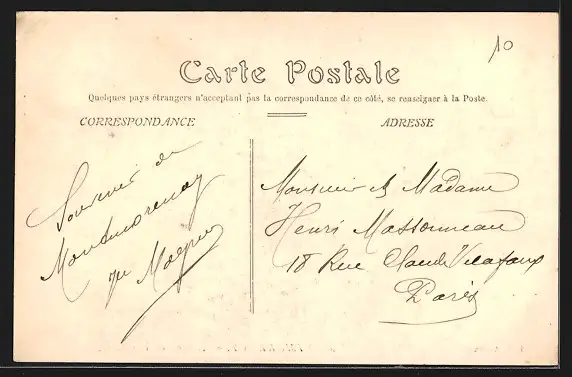 10
Carte Postale
Quelques pays étrangers n'acceptant pas la correspondance de ce côté, se renseigner à la Poste.
CORRESPONDANCE
ADRESSE
Souvenir de
Montmorency
Monsieur & Madame
Henri Massonneau
18 Rue Claude Vellefaux
Paris